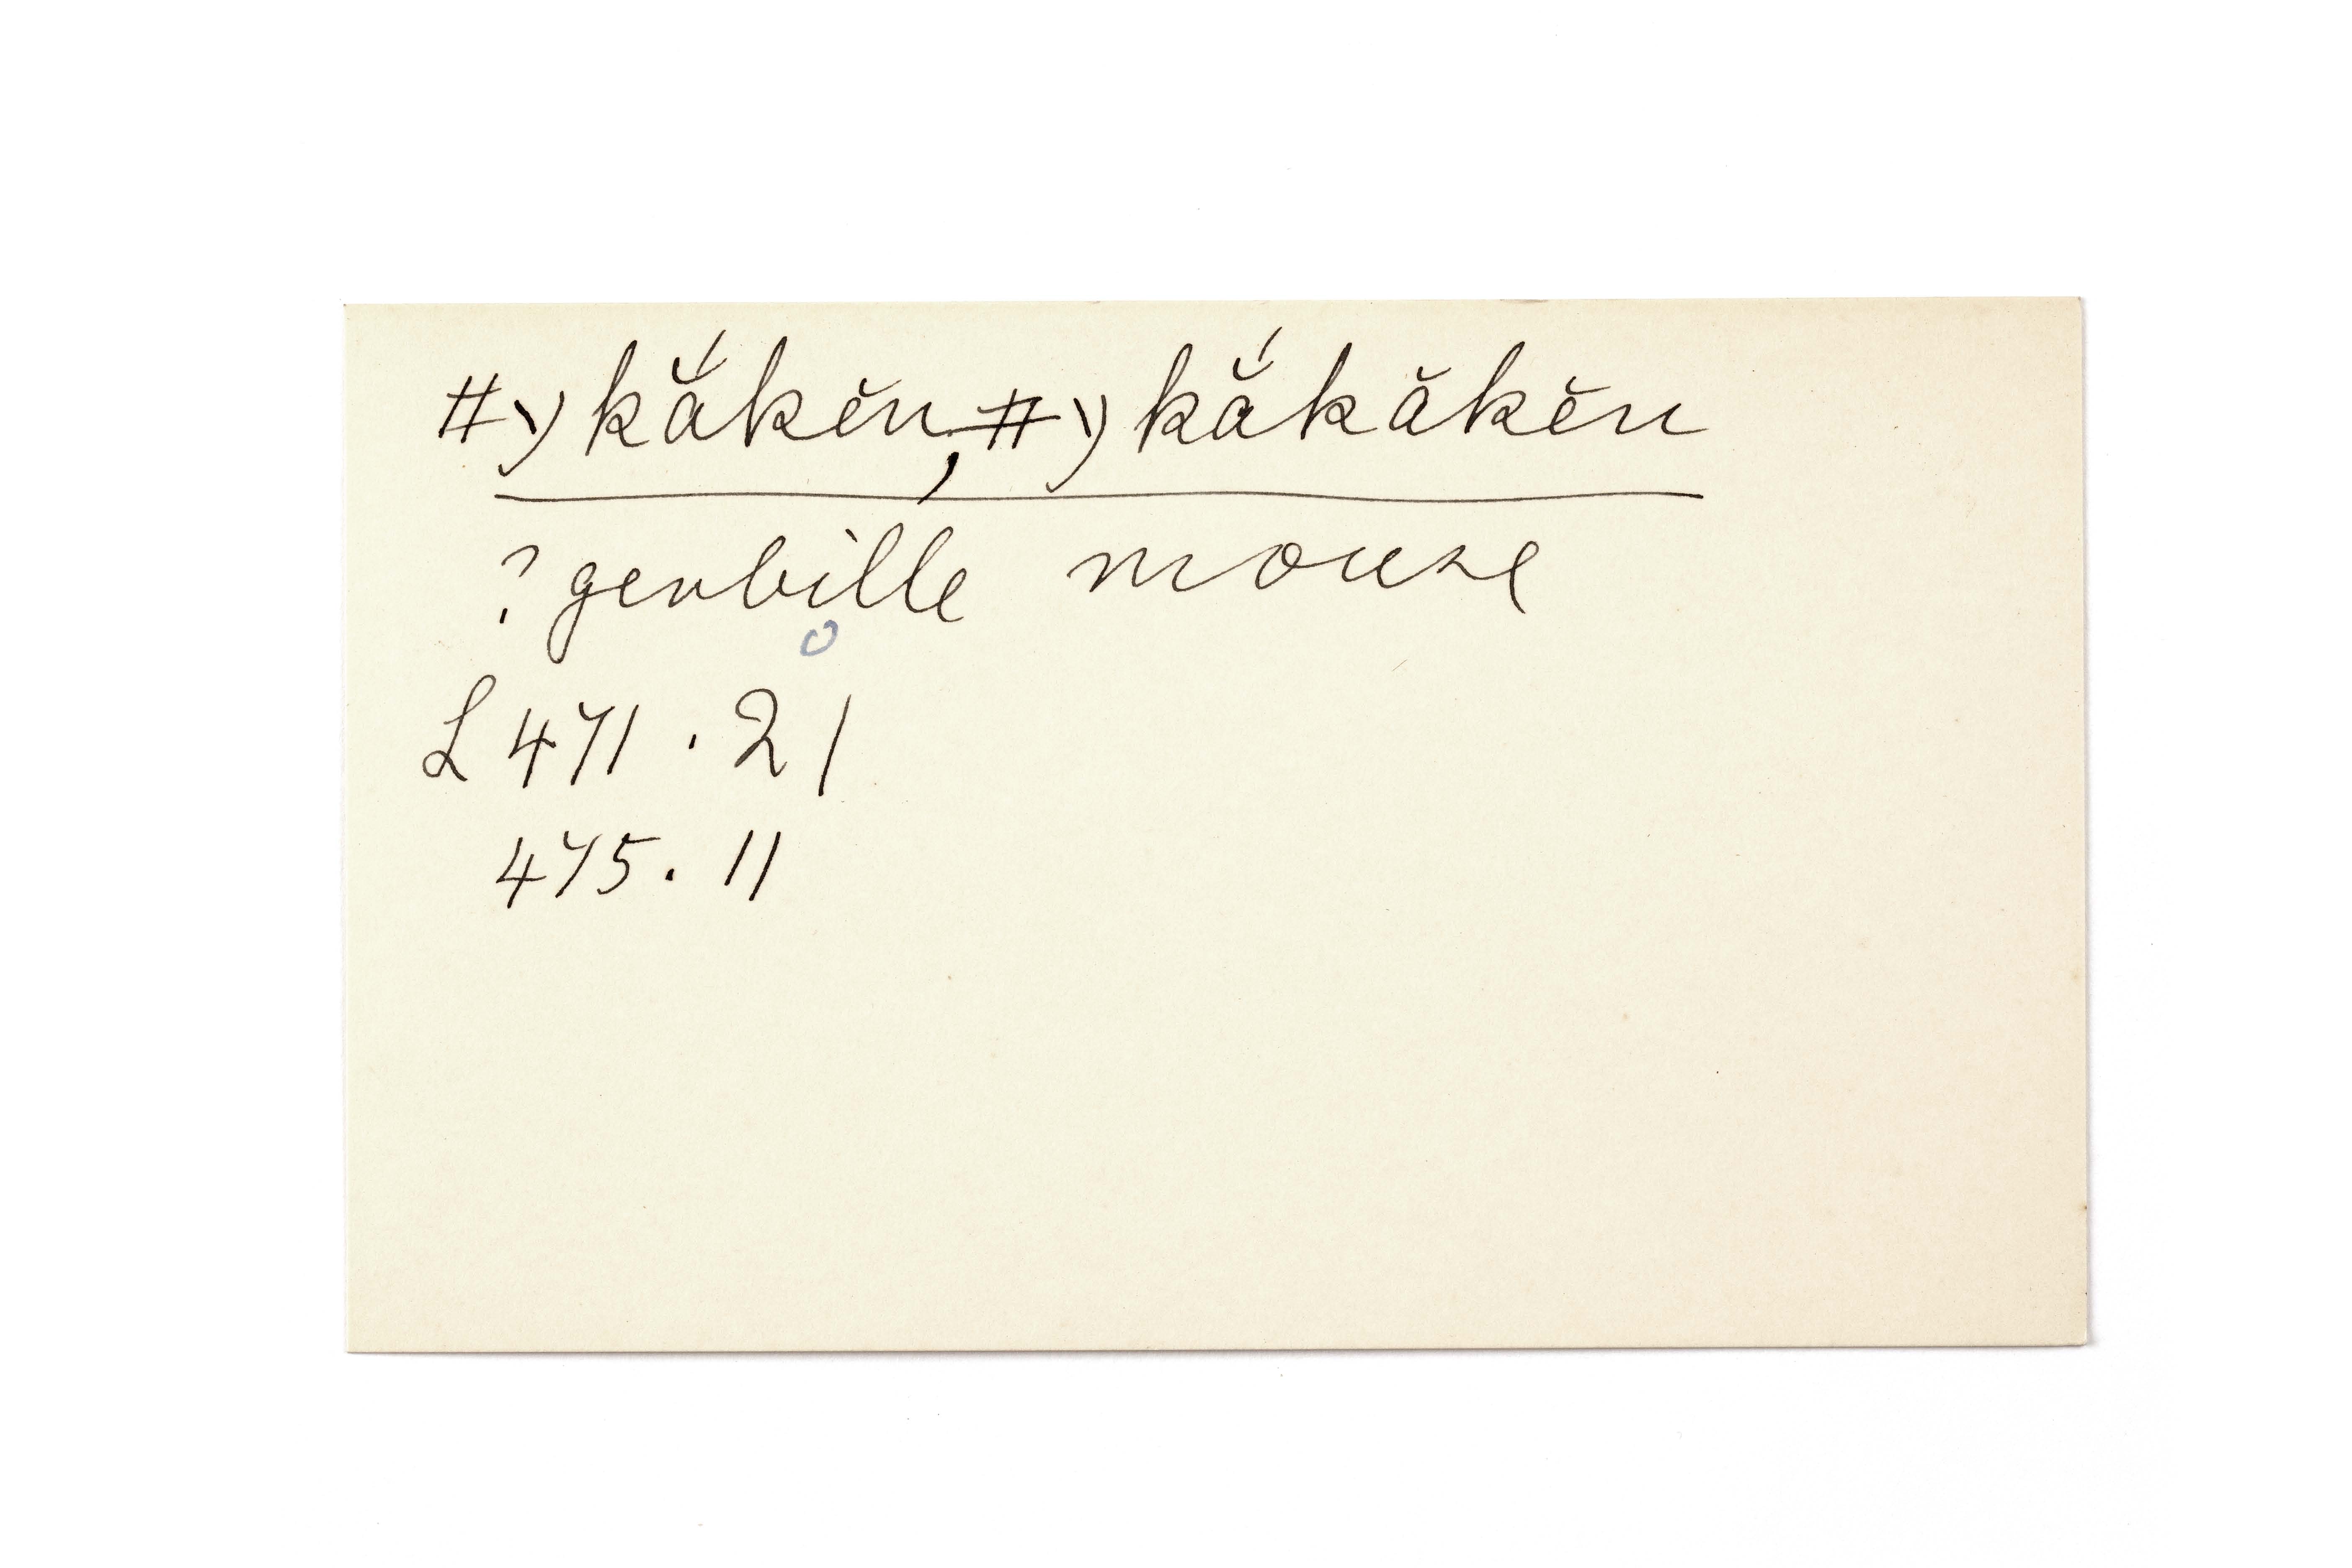 #ʏ)kắkĕn, #ʏ)kắkăkĕn
? gerbille mouse
L 471 . 21
475 . 11